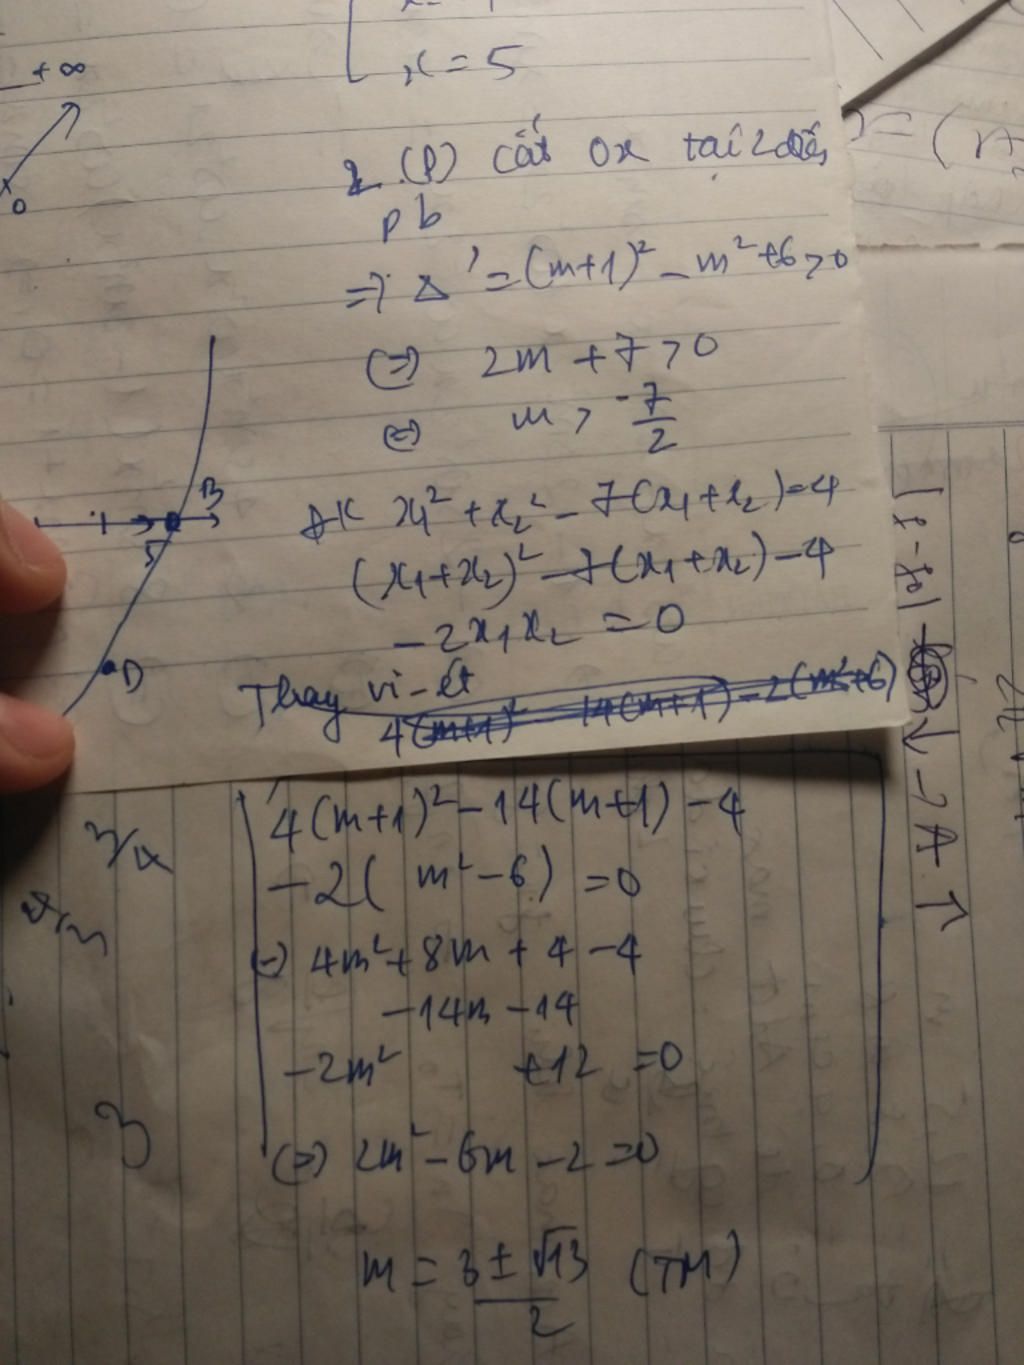 +∞
x = 5
2. (P) cắt Ox tại 2 điểm
pb
=> Δ' = (m+1)² - m² + 6 > 0
0
(=) 2m + 7 > 0
(=) m > -7/2
B
ĐK x₁² + x₂² - 7(x₁+x₂) = 4
5
(x₁+x₂)² - 7(x₁+x₂) - 4
- 2x₁x₂ = 0
D
Thay vi-ét
4(m+1)² - 14(m+1) - 2(m²+6)
4(m+1)² - 14(m+1) - 4
- 2( m² - 6) = 0
(=) 4m² + 8m + 4 - 4
- 14m - 14
- 2m² + 12 = 0
(=) 2m² - 6m - 2 = 0
m = (3 ± √13)/2 (TM)
|f - f₀| ↓ -> A ↑